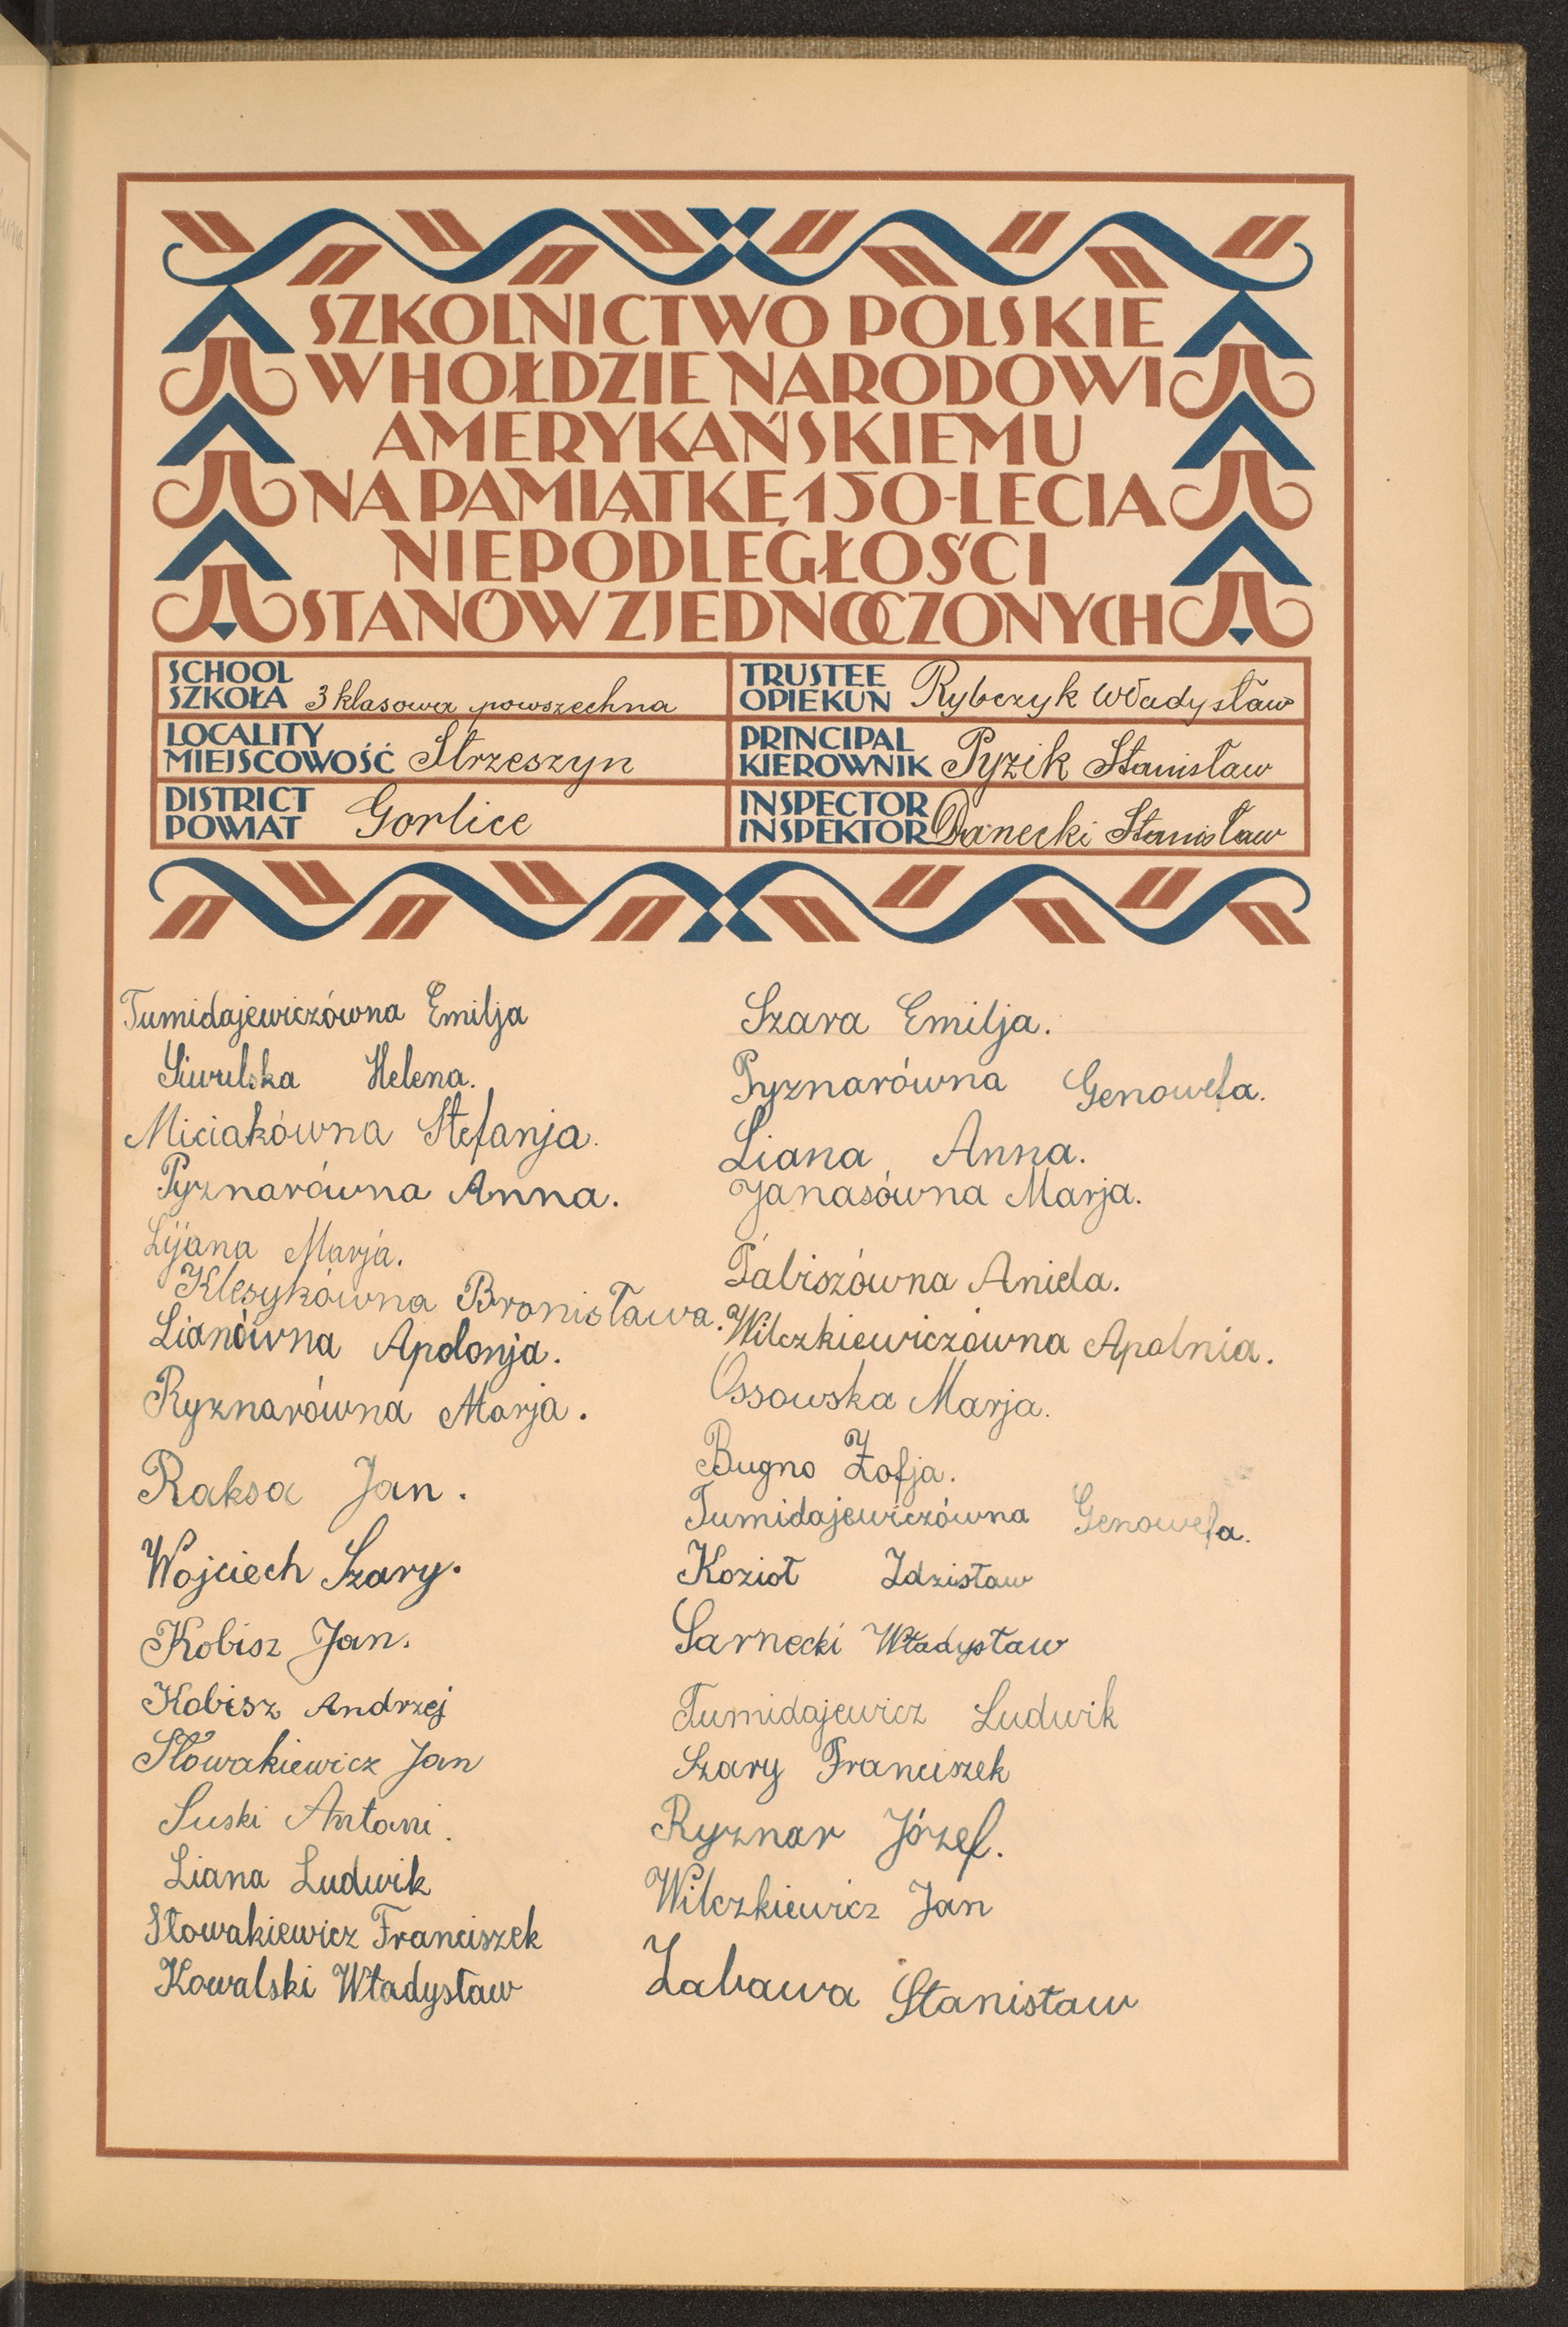 SZKOLNICTWO POLSKIE
W HOŁDZIE NARODOWI
AMERYKAŃSKIEMU
NA PAMIĄTKĘ 150-LECIA
NIEPODLEGŁOŚCI
STANÓW ZJEDNOCZONYCH
SCHOOL
SZKOŁA 3 klasowa powszechna
TRUSTEE
OPIEKUN Rybczyk Władysław
LOCALITY
MIEJSCOWOŚĆ Strzeszyn
PRINCIPAL
KIEROWNIK Pyzik Stanisław
DISTRICT
POWIAT Gorlice
INSPECTOR
INSPEKTOR Danecki Stanisław
Tumidajewiczówna Emilja
Siwulska Helena.
Miciakówna Stefanja.
Pyznarówna Anna.
Lijana Marja.
Klesykówna Bronisława.
Lianówna Apolonja.
Ryznarówna Marja.
Raksa Jan.
Wojciech Szary.
Kobisz Jan.
Kobisz Andrzej
Słowakiewicz Jan
Suski Antoni.
Liana Ludwik
Słowakiewicz Franciszek
Kowalski Władysław
Szara Emilja.
Pyznarówna Genowefa.
Liana Anna.
Janasówna Marja.
Pabiszówna Aniela.
Wilczkiewiczówna Apolnia.
Ossowska Marja.
Bugno Zofja.
Tumidajewiczówna Genowefa.
Kozioł Zdzisław
Sarnecki Władysław
Tumidajewicz Ludwik
Szary Franciszek
Ryznar Józef.
Wilczkiewicz Jan
Zabawa Stanisław